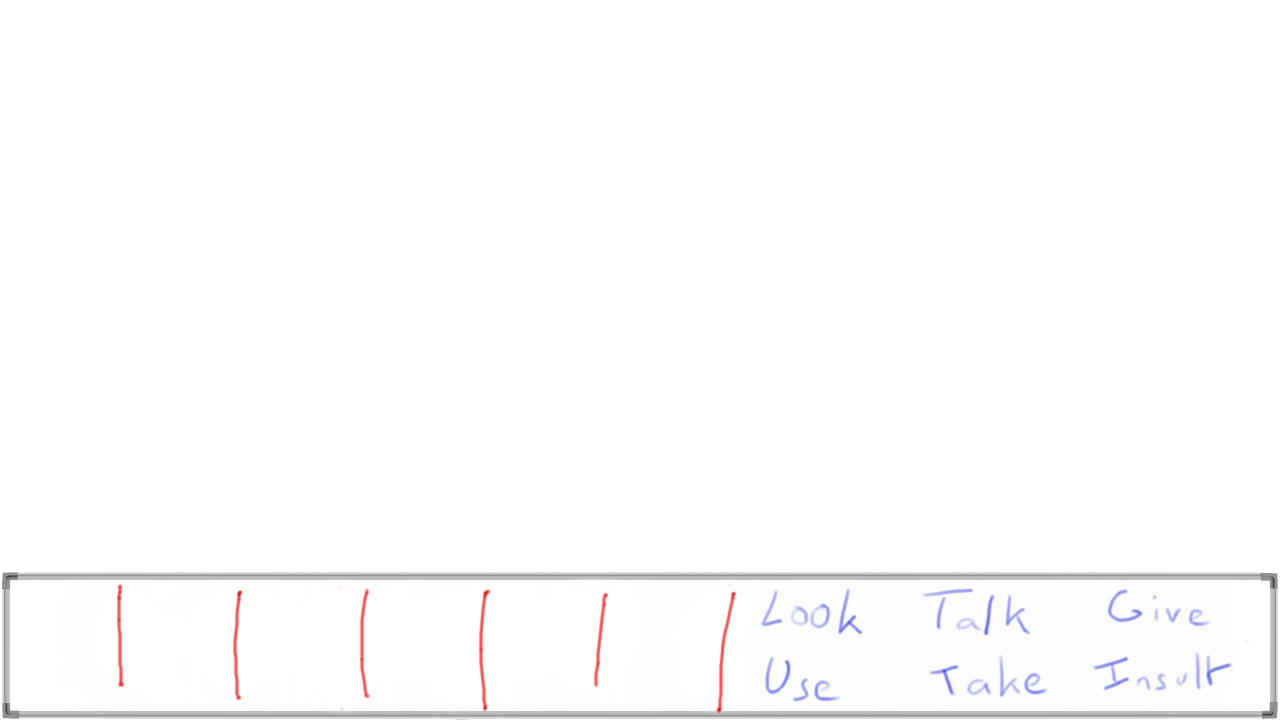 Look Talk Give
Use Take Insult